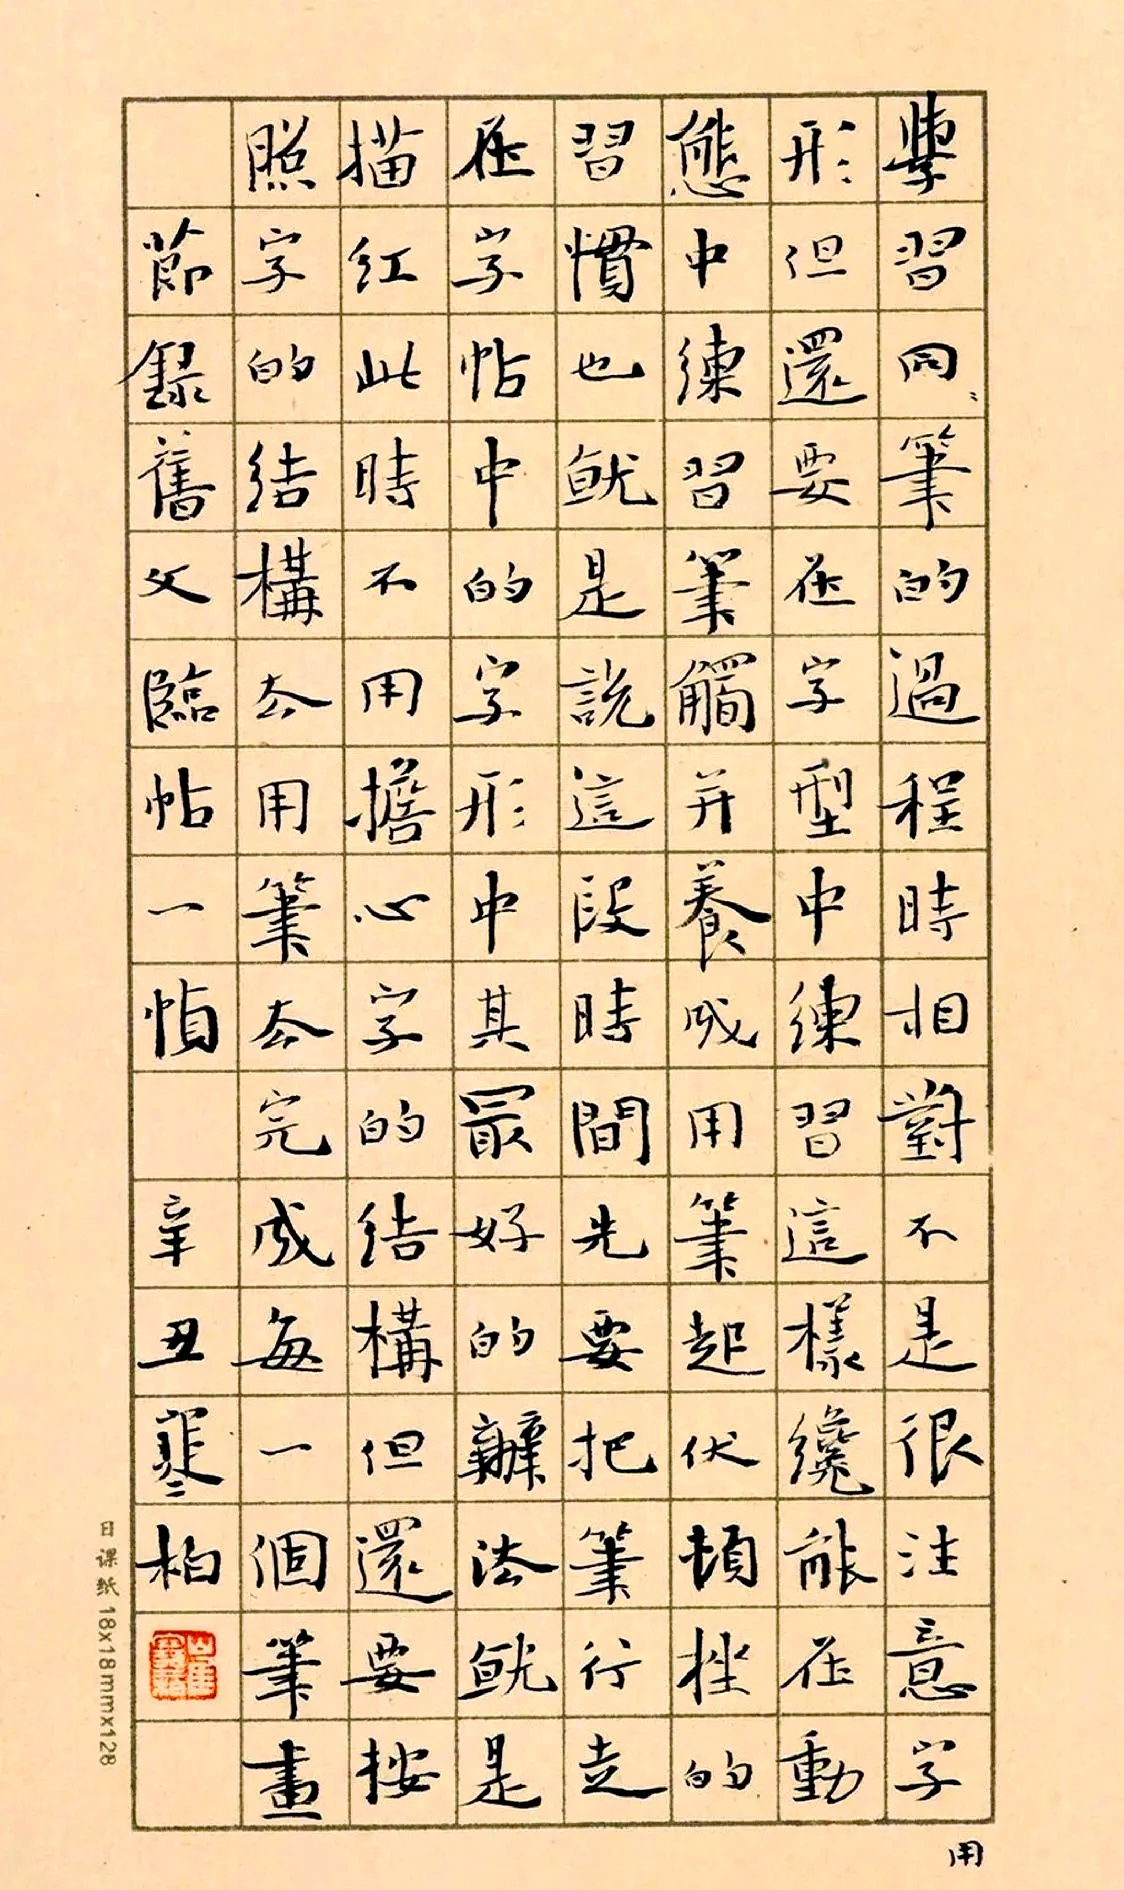 學習同筆的過程時相對不是很注意字
用
形但還要在字型中練習這樣纔能在動
態中練習筆觸并養成用筆起伏頓挫的
習慣也就是說這段時間先要把筆行走
在字帖中的字形中其最好的辦法就是
描紅此時不用擔心字的結構但還要按
照字的結構去用筆去完成每一個筆畫
節錄舊文臨帖一幀 辛丑寒柏
日课纸 18x18mmx128